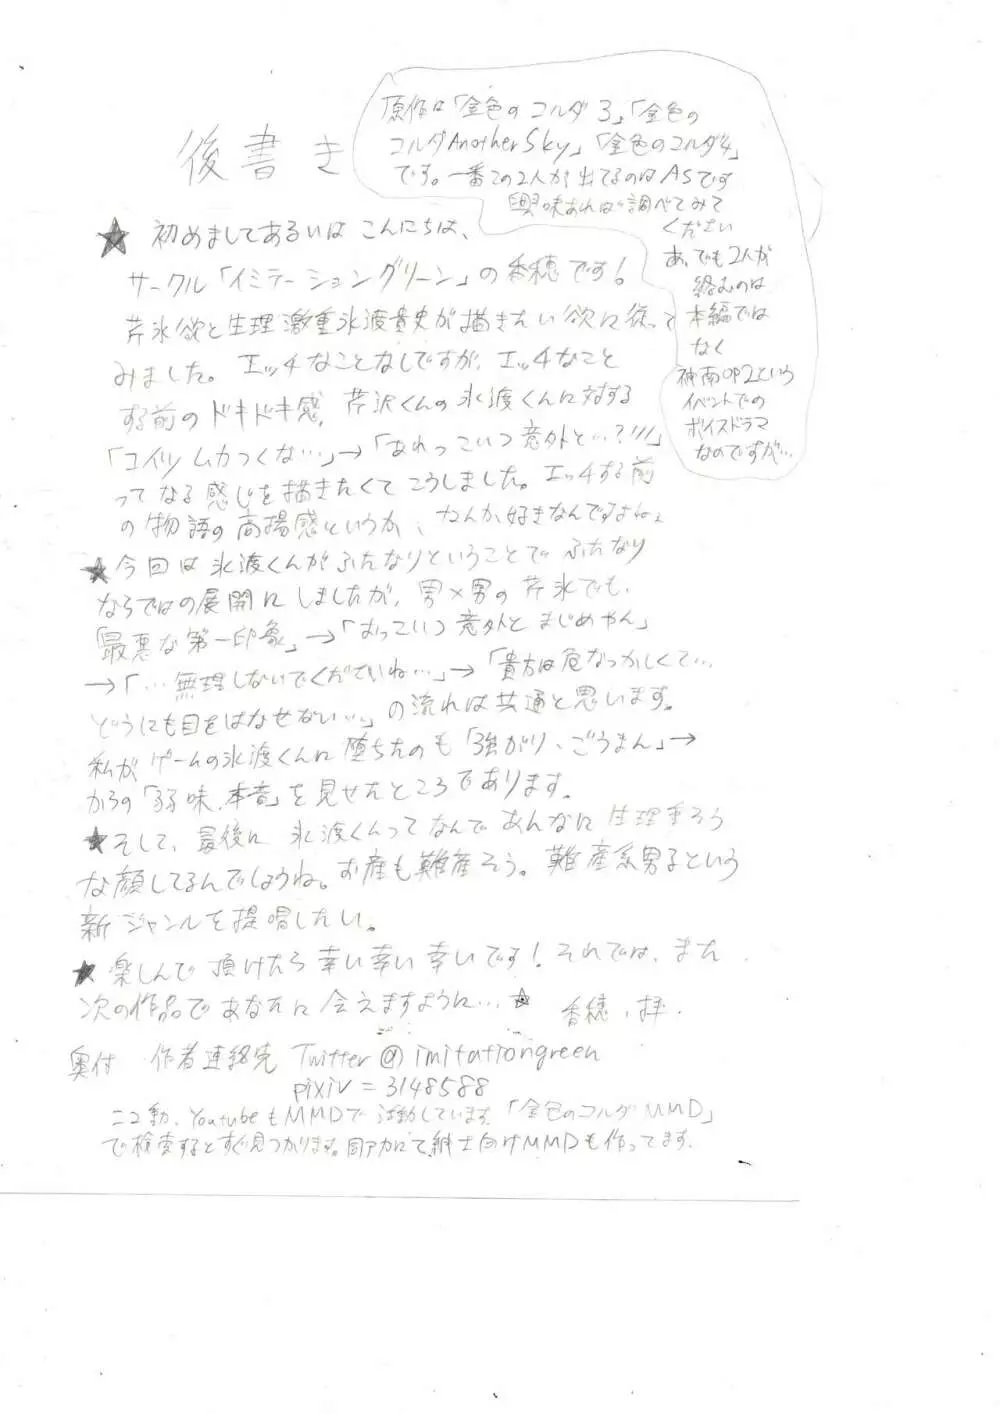 後書き
原作は「金色のコルダ3」「金色の
コルダAnotherSky」「金色のコルダ4」
です。一番この2人が出てるのはASです
興味あれば調べてみて
ください
あ、でも2人が
絡むのは
本編では
なく
神南OP2という
イベントでの
ボイスドラマ
なのですが…
★初めましてあるいはこんにちは、
サークル「イミテーショングリーン」の香穂です!
芹氷欲と生理激重氷渡貴史が描きたい欲に従って
みました。エッチなことなしですが、エッチなこと
する前のドキドキ感、芹沢くんの氷渡くんに対する
「コイツムカつくな…」→「あれっこいつ意外と…?!!!」
ってなる感じを描きたくてこうしました。エッチする前
の物語の高揚感というか、なんか好きなんですよね。
★今回は氷渡くんがふたなりということでふたなり
ならではの展開にしましたが、男×男の芹氷でも、
「最悪な第一印象」→「あっこいつ意外とまじめやん」
→「…無理しないでくださいね…」→「貴方は危なっかしくて…
どうにも目をはなせない…」の流れは共通と思います。
私がゲームの氷渡くんに堕ちたのも「強がり、ごうまん」→
からの「弱味、本音」を見せたところであります。
★そして、最後に氷渡くんってなんであんなに生理重そう
な顔してるんでしょうね。お産も難産そう。難産系男子という
新ジャンルを提唱したい。
★楽しんで頂けたら幸い幸い幸いです!それでは、また
次の作品であなたに会えますように…☆ 香穂、拝.
奥付 作者連絡先 Twitter@imitationgreen
pixiv=3148588
ニコ動、YoutubeもMMDで活動しています。「金色のコルダMMD」
で検索するとすぐ見つかります。同アカにて紳士向けMMDも作ってます.